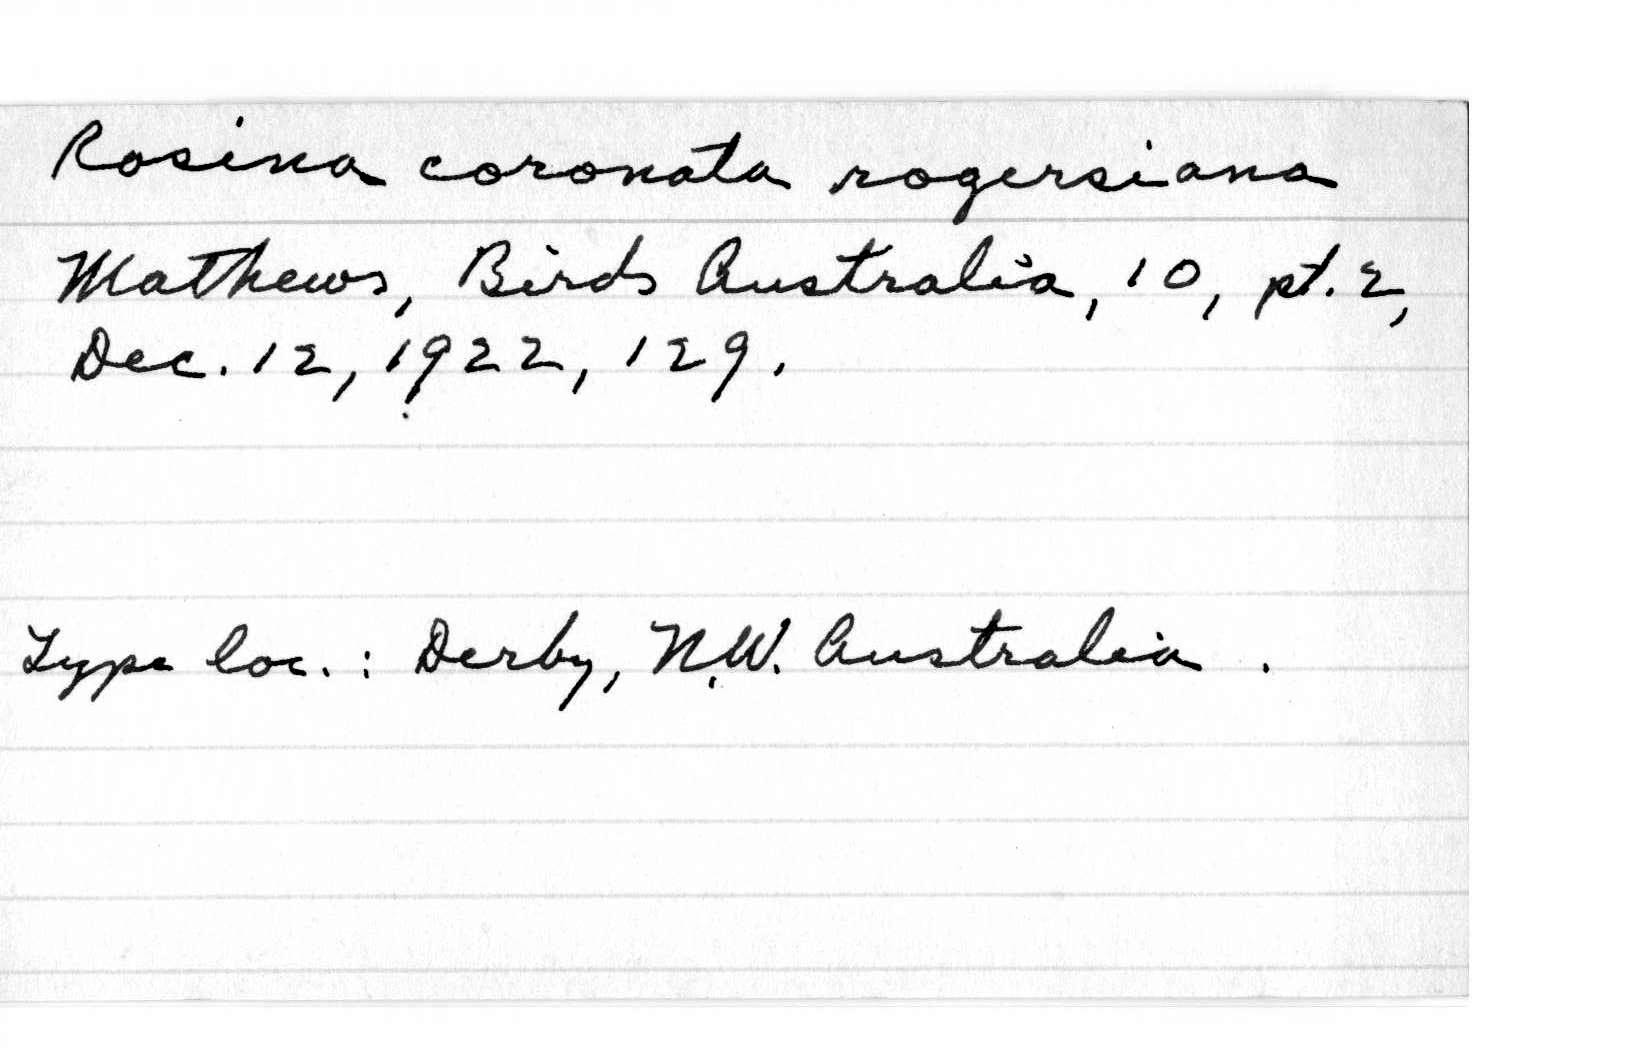 Rosina coronata rogersiana
Mathews, Birds Australia, 10, pt. 2,
Dec. 12, 1922, 129.
Type loc. : Derby, N.W. Australia .